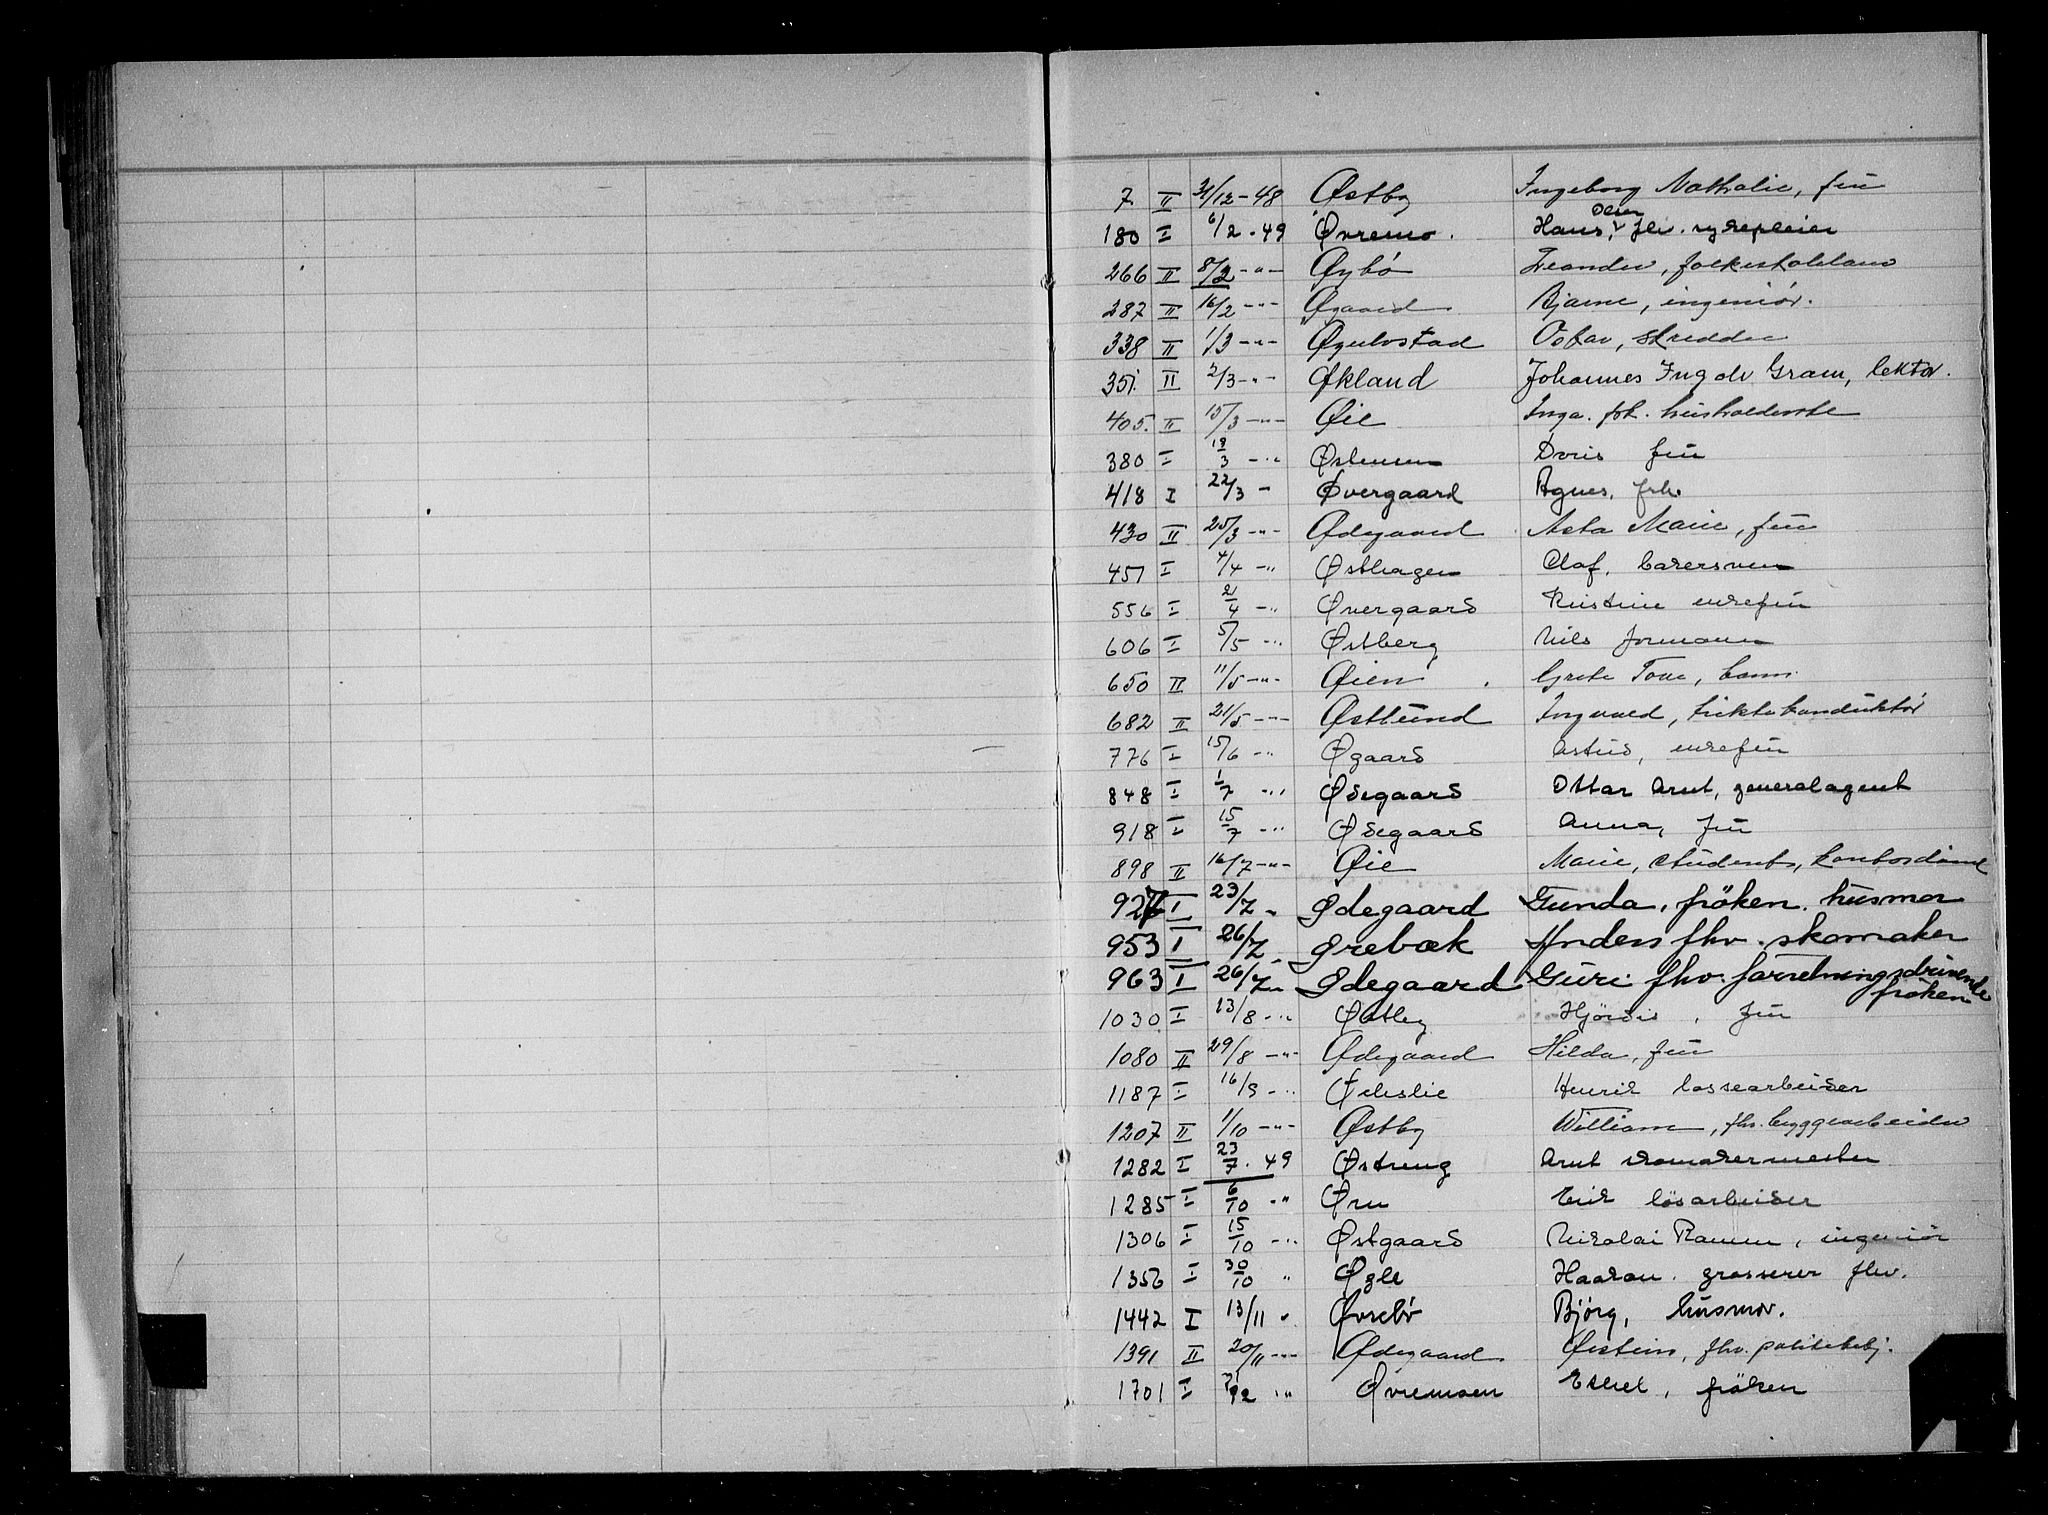 7 II 31/12-48 Østby Ingeborg Nathalie, fru
180 I 6/2-49 Øvremo. Hans Olsen, fhv. sykepleier
266 II 8/2 -"- Øybø folkeskolelærer
287 II 16/2 -"- Øgaard Bjarne, ingeniør.
338 II 1/3 -"- Øgulvstad Oskar, skredder
351. II 2/3 -"- Økland Johannes Ingolv Gram, lektor.
405. II 15/3 -"- Øie Inga. frk. husholderske
380 I 18/3 -" Østensen Doris fru
418 I 22/3 - Øvergaard Agnes, frk.
430 II 25/3 -"- Ødegaard Asta Marie, fru
451 I 4/4 -" Østhagen Olaf, bakersven
556 I 21/4 -" Øvergaard Kristine enkefru
606 I 5/5 -" Østberg Nils formann
650 II 11/5 -"- Øien Grete Tove, barn
682 II 21/5 -"- Østlund Ingvald, trikkekonduktør
776 I 15/6 -" Øgaard Astrid, enkefru
848 I 1/7 -" Ødegaard Ottar Arnt, generalagent
918 I 15/7 -" Ødegaard Anna, fru
898 II 16/7 -"- Øie Marie, student, kontordame
927 I 23/7 - Ødegaard Gunda, fröken. husmor
953 I 26/7 - Ørebæk Anders fhv. skomaker
963 I 26/7 - Ødegaard Guri fhv. forretningsdrivende
fröken
1030 I 13/8 -" Østby Hjördis, fru
1080 II 29/8 -"- Ødegaard Hilda, fru
1187 I 16/9 -" Henrik lossearbeider
1207 II 1/10 -"- Østby William, fhv. byggearbeider
1282 I 23/7. 49 Østreng Arnt skomakermester
1285 I 6/10 -" Øren Erik lösarbeider
1306 I 15/10 -" Østgaard Nikolai Ramm, ingeniör
1356 I 30/10 " Haakon. grosserer fhv.
1442 I 13/11 " Øvrebø Bjørg, husmor.
1391 II 20/11 -"- Ødegaard Øistein, fhv. politibetj.
1701 I /12 " Øvremsen Ethel, fröken